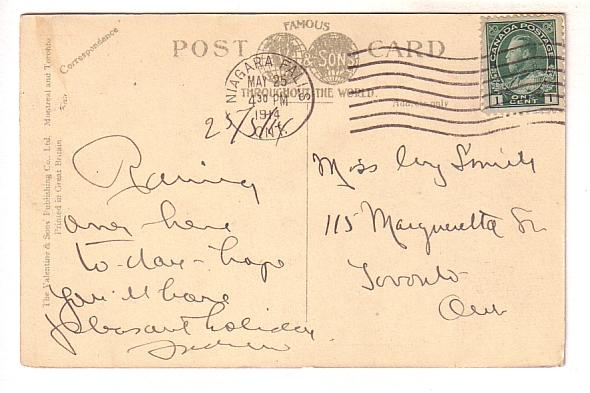 FAMOUS
POST CARD
& SONS
THROUGHOUT THE WORLD.
Correspondence
Address only
The Valentine & Sons' Publishing Co., Ltd. Montreal and Toronto
Printed in Great Britain
NIAGARA FALLS
MAY 25
4 30 PM
1914
ONT.
CANADA POSTAGE
1 ONE 1
CENT
25/5/14
Raining
over here
to-day - hope
you'll have
pleasant holiday.
Miss Smith
115 Margueretta St.
Toronto
Ont